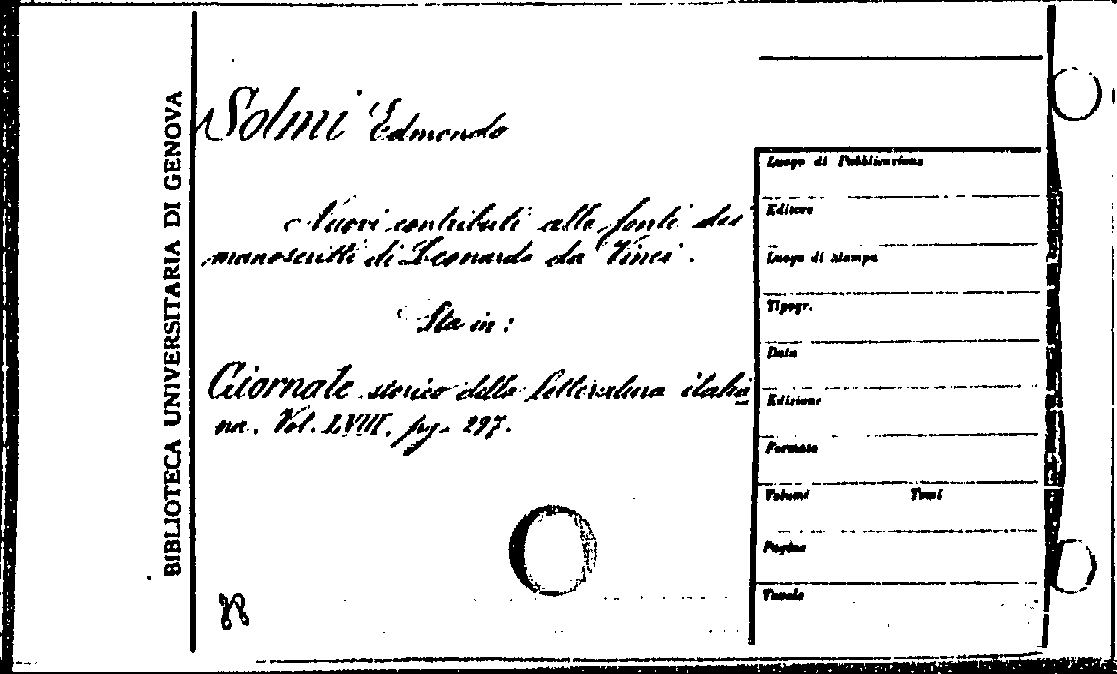 BIBLIOTECA UNIVERSITARIA DI GENOVA
Solmi Edmondo
Nuovi contributi alle fonti dei
manoscritti di Leonardo da Vinci.
Sta in:
Giornale storico della letteratura italia
na. Vol. LVIII. pg. 297.
Luogo di Pubblicazione
Editore
Luogo di stampa
Tipogr.
Data
Edizione
Formato
Volumi Tomi
Pagine
Tavole